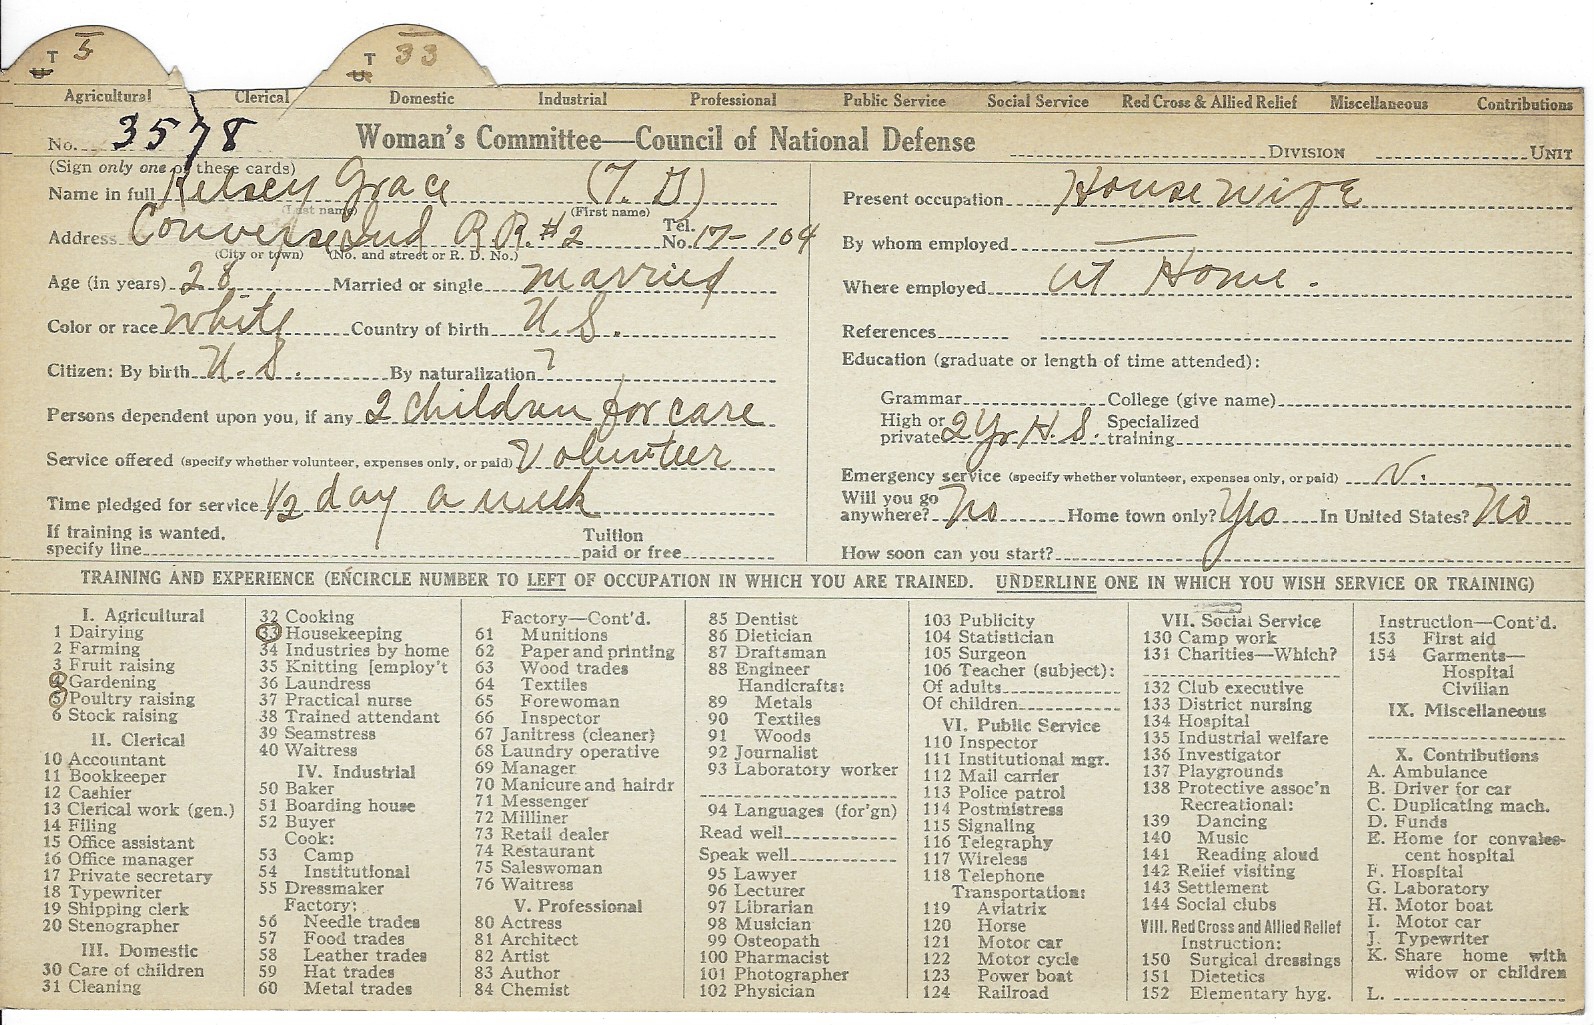 T 5 T 33
U U
Agricultural Clerical Domestic Industrial Professional Public Service Social Service Red Cross & Allied Relief Miscellaneous Contributions
No. 3578 Woman's Committee—Council of National Defense DIVISION UNIT
(Sign only one of these cards)
Name in full Kelsey Grace (T. G)
(Last name) (First name)
Address Converse Ind R R. #2 Tel. No. 17-104
(City or town) (No. and street or R. D. No.)
Age (in years) 28 Married or single married
Color or race White Country of birth U. S.
Citizen: By birth U. S. By naturalization ?
Persons dependent upon you, if any 2 children for care
Service offered (specify whether volunteer, expenses only, or paid) Volunteer
Time pledged for service 1/2 day a week
If training is wanted, Tuition
specify line paid or free
Present occupation House wife
By whom employed —
Where employed at Home.
References
Education (graduate or length of time attended):
Grammar College (give name)
High or private 2 Yr H. S. Specialized training
Emergency service (specify whether volunteer, expenses only, or paid) V.
Will you go anywhere? No Home town only? Yes In United States? No
How soon can you start?
TRAINING AND EXPERIENCE (ENCIRCLE NUMBER TO LEFT OF OCCUPATION IN WHICH YOU ARE TRAINED. UNDERLINE ONE IN WHICH YOU WISH SERVICE OR TRAINING)
I. Agricultural
1 Dairying
2 Farming
3 Fruit raising
4 Gardening
5 Poultry raising
6 Stock raising
II. Clerical
10 Accountant
11 Bookkeeper
12 Cashier
13 Clerical work (gen.)
14 Filing
15 Office assistant
16 Office manager
17 Private secretary
18 Typewriter
19 Shipping clerk
20 Stenographer
III. Domestic
30 Care of children
31 Cleaning
32 Cooking
33 Housekeeping
34 Industries by home
35 Knitting [employ't
36 Laundress
37 Practical nurse
38 Trained attendant
39 Seamstress
40 Waitress
IV. Industrial
50 Baker
51 Boarding house
52 Buyer
Cook:
53 Camp
54 Institutional
55 Dressmaker
Factory:
56 Needle trades
57 Food trades
58 Leather trades
59 Hat trades
60 Metal trades
Factory—Cont'd.
61 Munitions
62 Paper and printing
63 Wood trades
64 Textiles
65 Forewoman
66 Inspector
67 Janitress (cleaner)
68 Laundry operative
69 Manager
70 Manicure and hairdr
71 Messenger
72 Milliner
73 Retail dealer
74 Restaurant
75 Saleswoman
76 Waitress
V. Professional
80 Actress
81 Architect
82 Artist
83 Author
84 Chemist
85 Dentist
86 Dietician
87 Draftsman
88 Engineer
Handicrafts:
89 Metals
90 Textiles
91 Woods
92 Journalist
93 Laboratory worker
94 Languages (for'gn)
Read well
Speak well
95 Lawyer
96 Lecturer
97 Librarian
98 Musician
99 Osteopath
100 Pharmacist
101 Photographer
102 Physician
103 Publicity
104 Statistician
105 Surgeon
106 Teacher (subject):
Of adults
Of children
VI. Public Service
110 Inspector
111 Institutional mgr.
112 Mail carrier
113 Police patrol
114 Postmistress
115 Signaling
116 Telegraphy
117 Wireless
118 Telephone
Transportation:
119 Aviatrix
120 Horse
121 Motor car
122 Motor cycle
123 Power boat
124 Railroad
VII. Social Service
130 Camp work
131 Charities—Which?
132 Club executive
133 District nursing
134 Hospital
135 Industrial welfare
136 Investigator
137 Playgrounds
138 Protective assoc'n
Recreational:
139 Dancing
140 Music
141 Reading aloud
142 Relief visiting
143 Settlement
144 Social clubs
VIII. Red Cross and Allied Relief
Instruction:
150 Surgical dressings
151 Dietetics
152 Elementary hyg.
Instruction—Cont'd.
153 First aid
154 Garments—
Hospital
Civilian
IX. Miscellaneous
X. Contributions
A. Ambulance
B. Driver for car
C. Duplicating mach.
D. Funds
E. Home for convales-
cent hospital
F. Hospital
G. Laboratory
H. Motor boat
I. Motor car
J. Typewriter
K. Share home with
widow or children
L.